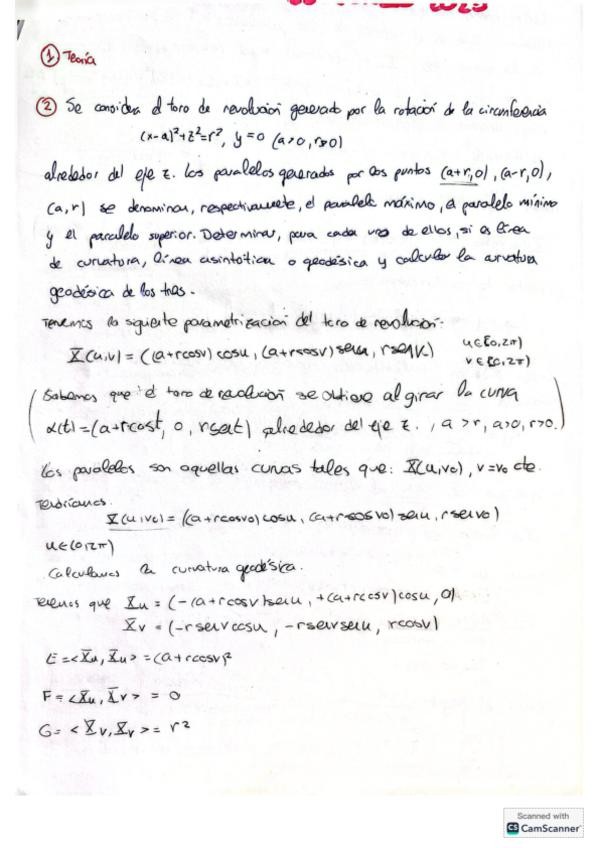 2023
① Teoría
② Se considera el toro de revolución generado por la rotación de la circunferencia
(x-a)²+z²=r², y=0 (a>0, r>0)
alrededor del eje z. Los paralelos generados por los puntos (a+r,0), (a-r,0),
(a,r) se denominan, respectivamente, el paralelo máximo, el paralelo mínimo
y el paralelo superior. Determinar, para cada uno de ellos, si es línea
de curvatura, línea asintótica o geodésica y calcular la curvatura
geodésica de los tres.
Tenemos la siguiente parametrización del toro de revolución:
X(u,v) = ((a+rcosv)cosu, (a+rcosv)senu, rsenv) u∈[0,2π)
v∈[0,2π)
(Sabemos que el toro de revolución se obtiene al girar la curva
α(t)=(a+rcost, 0, rsent) alrededor del eje z., a>r, a>0, r>0.)
Los paralelos son aquellas curvas tales que: X(u,v₀), v=v₀ cte.
Tendríamos.
X(u,v₀) = ((a+rcosv₀)cosu, (a+rcosv₀)senu, rsenv₀)
u∈[0,2π)
Calculamos la curvatura geodésica.
Tenemos que Xu = (-(a+rcosv)senu, +(a+rcosv)cosu, 0)
Xv = (-rsenvcosu, -rsenvsenu, rcosv)
E=<Xu,Xu> = (a+rcosv)²
F=<Xu,Xv> = 0
G=<Xv,Xv> = r²
Scanned with
CS CamScanner